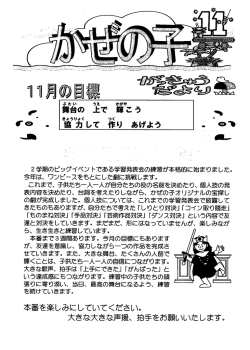 11
かぜの子
がっきゅう
だより
11月の目標
ぶたい うえ かがや
舞台の 上で 輝こう
きょうりょく つく
協力して 作り あげよう
2学期のビッグイベントである学習発表会の練習が本格的に始まりました。
今年は、ワンピースをもとにした劇に挑戦します。
これまで、子供たち一人一人が自分たちの役の名前を決めたり、個人技の発
表内容を決めたり、台詞を考えたりしながら、かぜの子オリジナルの宝探し
の劇が完成しました。個人技については、これまでの学習発表会で披露して
きたものもありますが、自分たちで考えた「しりとり対決」「コイン取り競走」
「ものまね対決」「手品対決」「芸術作品対決」「ダンス対決」という内容で友
達と対決をしていきます。まだまだ、形にはなっていませんが、楽しみなが
ら、生き生きと練習しています。
本番まで3週間あります。今月の目標にもあります
が、友達を意識し、協力しながら一つの作品を完成さ
せていきます。また、大きな舞台、たくさんの人前で
輝くことは、子供たち一人一人の自信につながります。
大きな歓声、拍手は「上手にできた」「がんばった」と
いう達成感にもつながります。練習中の子供たちの頑
張りに寄り添い、当日、最高の舞台になるよう、練習
を続けていきます。
本番を楽しみにしていてください。
大きな大きな声援、拍手をお願いいたします。